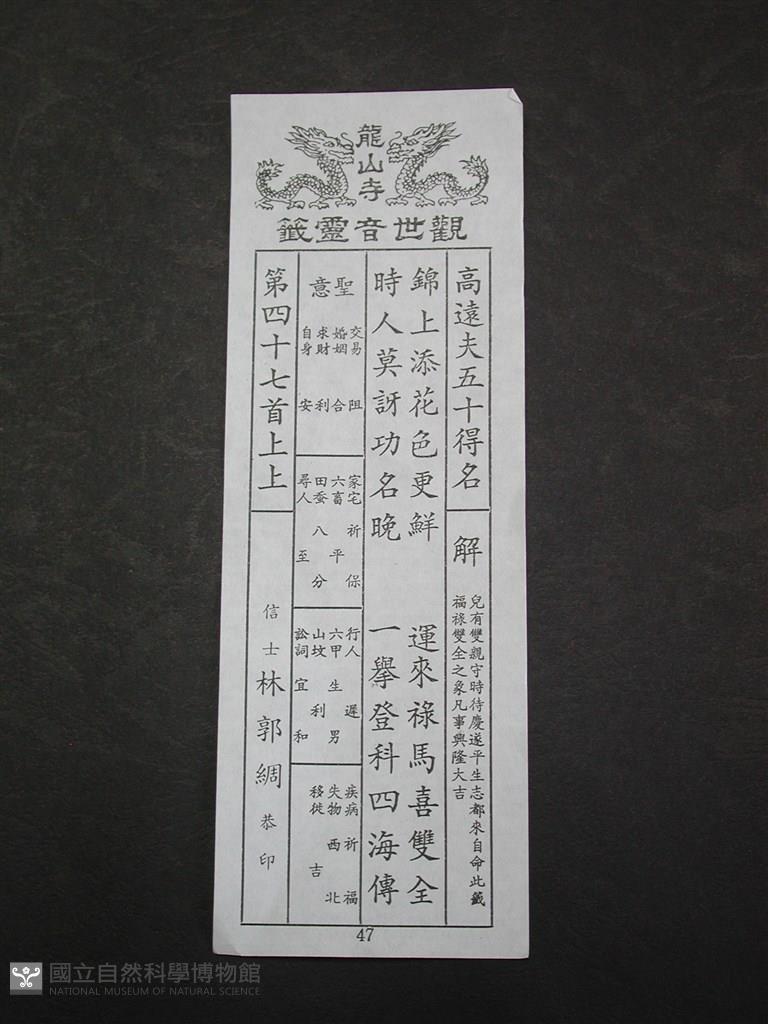 龍山寺
觀世音靈籤
高遠夫五十得名
解
兒有雙親守時待慶遂平生志都來自命此籤
福祿雙全之象凡事興隆大吉
錦上添花色更鮮
運來祿馬喜雙全
時人莫訝功名晚
一舉登科四海傳
聖意
交易 阻
婚姻 合
求財 利
自身 安
家宅 祈保
六畜 平
田蚕 八分
尋人 至
行人 遲
六甲 生男
山坟 利
訟詞 宜和
疾病 祈福
失物 西北
移徙 吉
第四十七首上上
信士林郭綢恭印
47
國立自然科學博物館
NATIONAL MUSEUM OF NATURAL SCIENCE